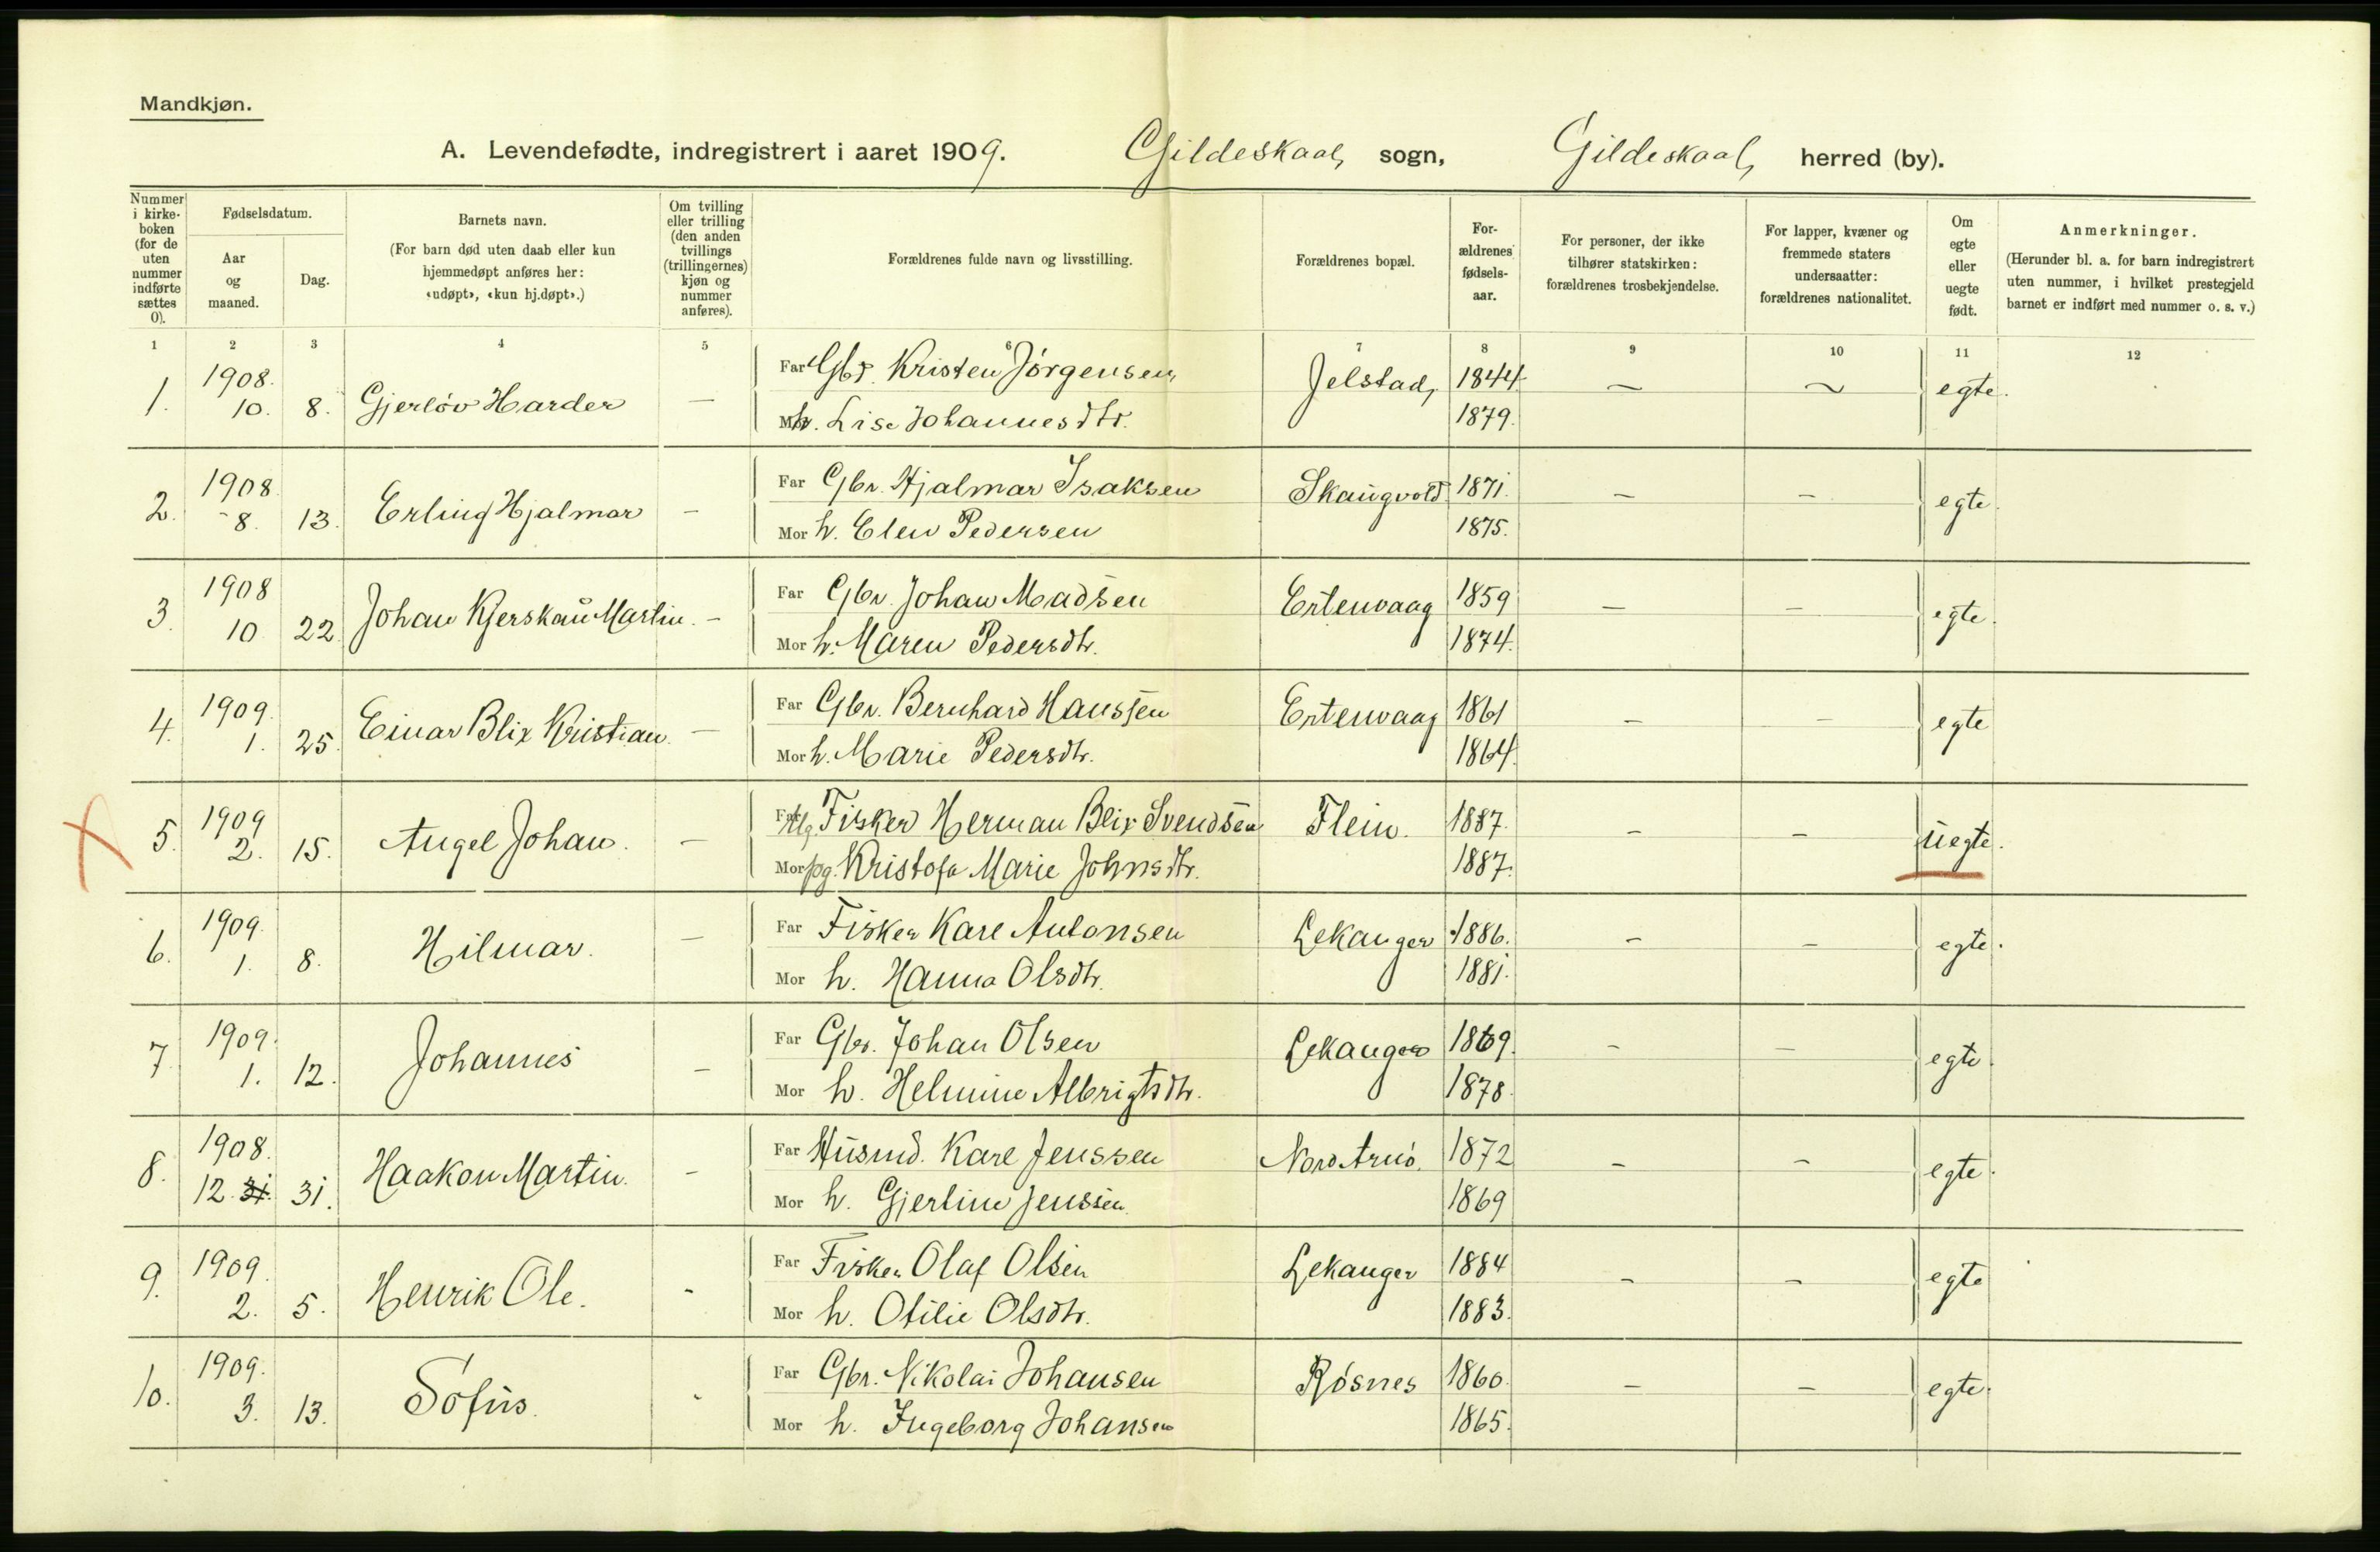 Mandkjøn.
A. Levendefødte, indregistrert i aaret 1909. Gildeskaal, sogn, Gildeskaal, herred (by).
Nummer i kirke-boken (for de uten nummer indførte sættes 0).
Fødselsdatum.
Aar og maaned.
Dag.
Barnets navn.
(For barn død uten daab eller kun hjemmedøpt anføres her: «udøpt», «kun hj.døpt».)
Om tvilling eller trilling (den anden tvillings (trillingernes) kjøn og nummer anføres).
Forældrenes fulde navn og livsstilling.
Forældrenes bopæl.
For-ældrenes fødsels-aar.
For personer, der ikke tilhører statskirken: forældrenes trosbekjendelse.
For lapper, kvæner og fremmede staters undersaatter: forældrenes nationalitet.
Om egte eller uegte født.
Anmerkninger.
(Herunder bl. a. for barn indregistrert uten nummer, i hvilket prestegjeld barnet er indført med nummer o. s. v.)
1 2 3 4 5 6 7 8 9 10 11 12
1. 1908. 10. 8. Gjerløv Harder — Far Gbr. Kristen Jørgensen, Jelstad, 1844. — — egte.
Mor h. Lise Johannesdtr. 1879.
2. 1908 8. 13. Erling Hjalmar — Far Gbr. Hjalmar Isaksen Skaugvold 1871. — — egte.
Mor h. Elen Pedersen 1875.
3. 1908 10 22. Johan Kjerskau Martin. — Far Gbr. Johan Madsen Ertenvaag 1859 — — egte.
Mor h. Maren Pedersdtr. 1874.
4. 1909. 1. 25. Einar Blix Kristian. — Far Gbr. Bernhard Hanssen Ertenvaag 1861 — — egte
Mor h. Marie Pedersdtr. 1864.
5. 1909 2. 15. Angel Johan. — Far Ug. Fisker Herman Blix Svendsen Flein. 1887. — — uegte.
Mor pg. Kristofa Marie Johnsdtr. 1887.
6. 1909. 1. 8. Hilmar. — Far Fisker Karl Antonsen Lekanger 1886. — — egte.
Mor h. Hanna Olsdtr. 1881.
7 1909. 1. 12. Johannes — Far Gbr. Johan Olsen Lekanger 1869. — — egte.
Mor h. Helmine Albrigtsdtr. 1878.
8. 1908. 12. 31. 31. Haakon Martin. — Far Husmd. Karl Jenssen Nord Arnø. 1872 — — egte.
Mor h. Gjertine Jenssen. 1869
9. 1909. 2. 5. Henrik Ole. - Far Fisker Olaf Olsen Lekanger 1884 — — egte
Mor h. Otilie Olsdtr. 1883.
10. 1909. 3. 13. Sofus. - Far Gbr. Nikolai Johansen Røsnes 1860. — — egte.
Mor h. Ingeborg Johansen 1865.